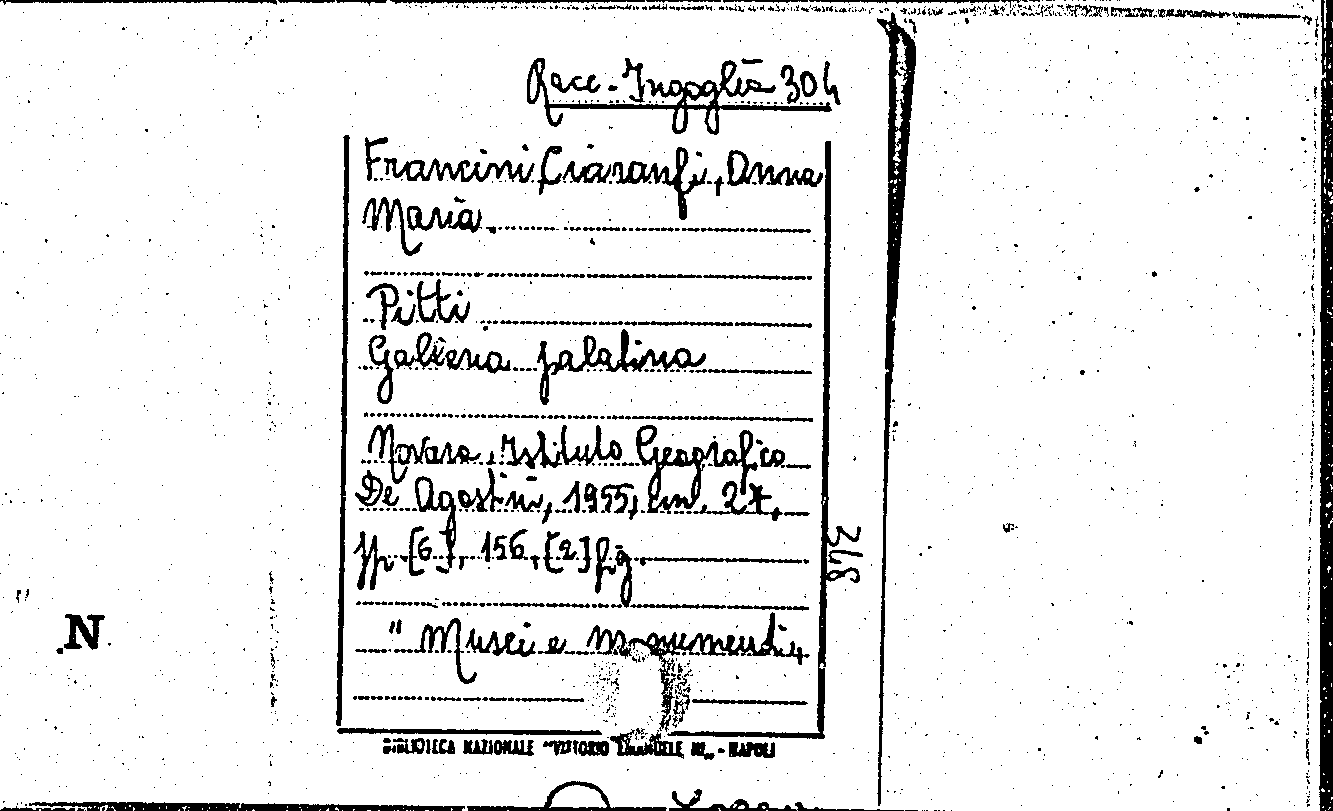 Racc-Ingoglia 304
Francini Ciaranfi, Anna
Maria.
Pitti
Galleria palatina
Novara, Istituto Geografico
De Agostini, 1955, cm. 27,
pp. [6], 156, [2] fig.
348
N
"Musei e monumenti"
BIBLIOTECA NAZIONALE "VITTORIO EMANUELE III" - NAPOLI